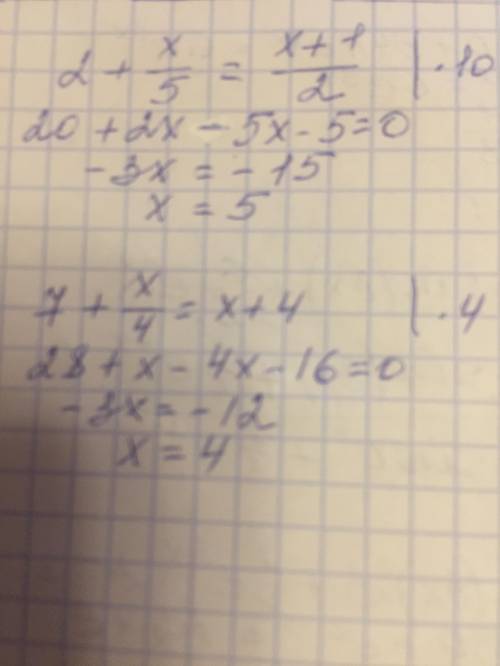 2 + x/5 = (x+1)/2 | · 10
20 + 2x - 5x - 5 = 0
-3x = -15
x = 5
7 + x/4 = x + 4 | · 4
28 + x - 4x - 16 = 0
-3x = -12
x = 4